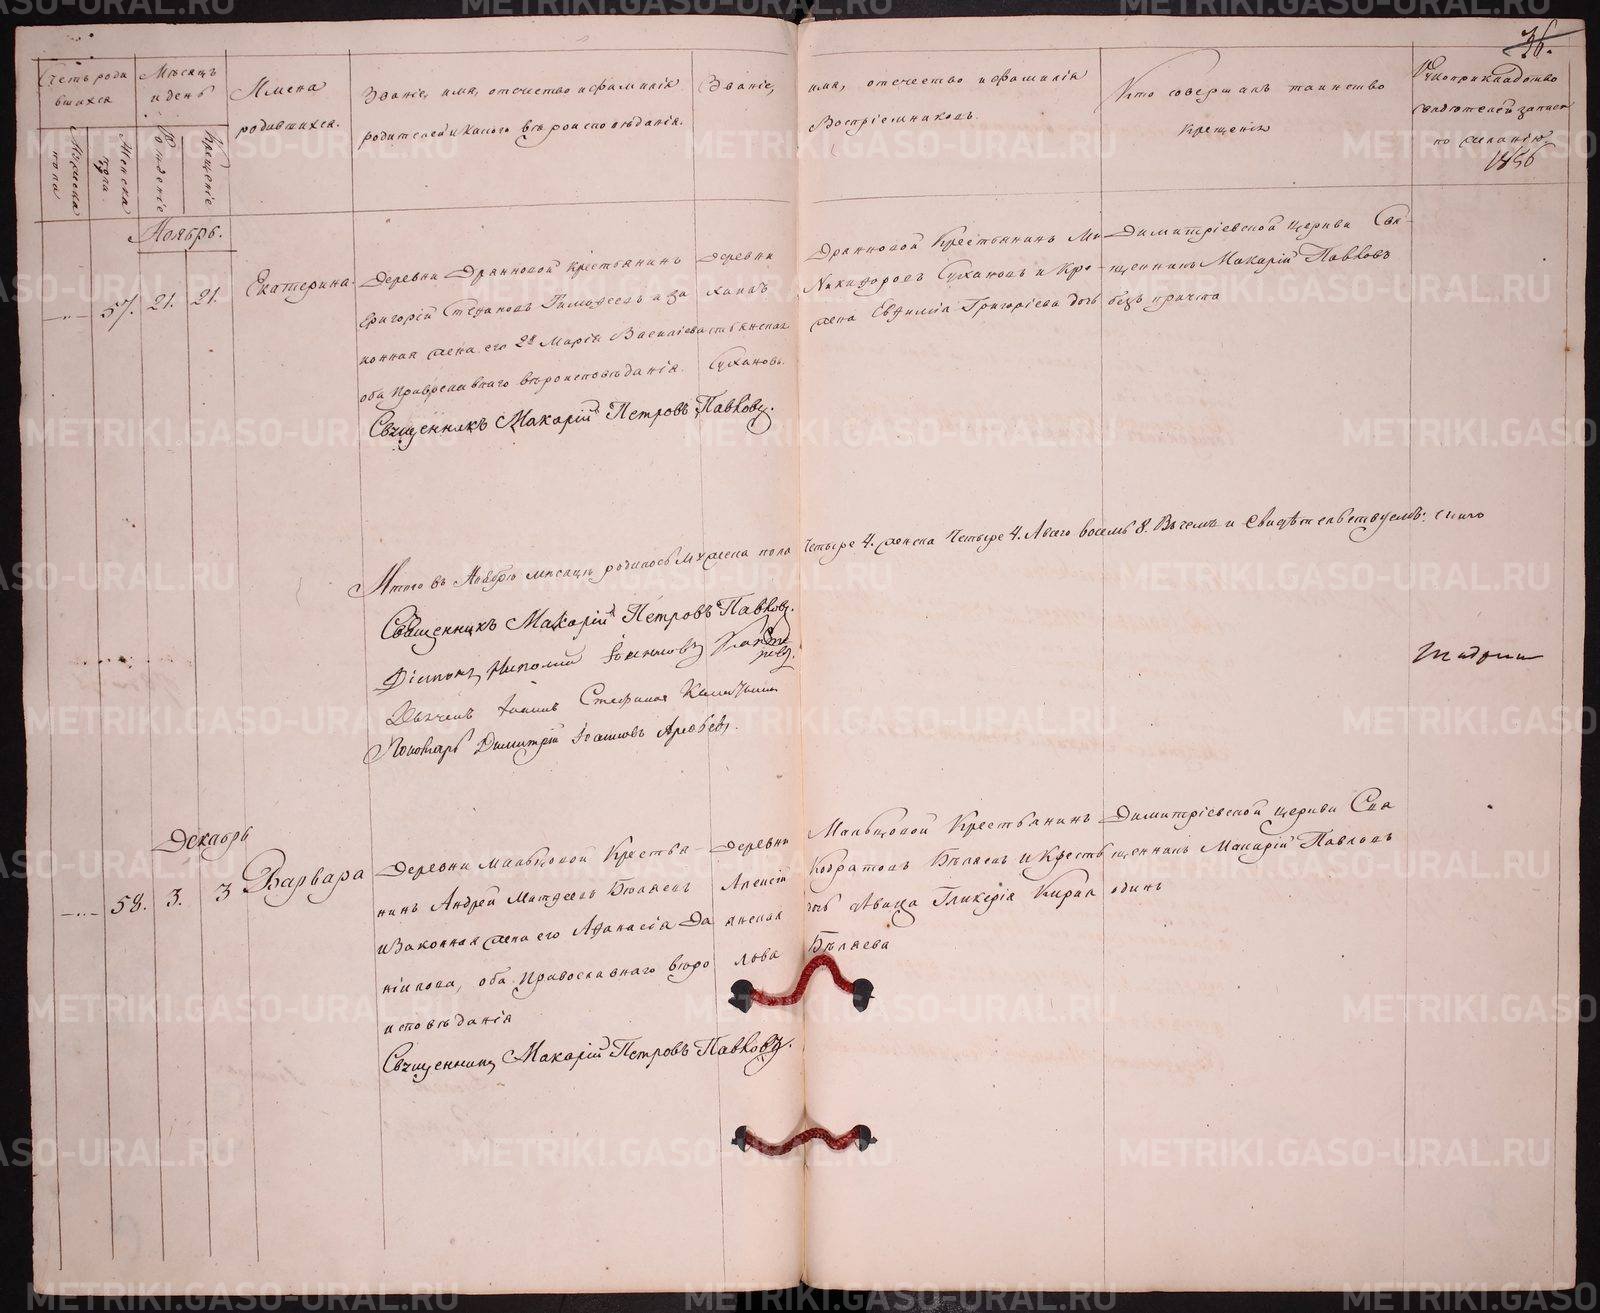 36.
Счетъ роди
вшихся
Мужеска
пола
Женска
пола
Мѣсяцъ
и день
Рожденіе
Крещеніе
Имена
родившихся.
Званіе, имя, отечество и фамилія
родителей и какого вѣроисповѣданія.
Званіе, имя, отечество и фамилія
Воспріемниковъ.
Кто совершалъ таинство
Крещенія
Рукоприкладство
свидетелей записи
по желанію
1856
Ноябрь.
57. 21. 21.
Екатерина.
Деревни Дранновой Крестьянинъ
Григорій Стефановъ Тимофеевъ и за
конная жена его 2я Марія Василіева
оба Православнаго вѣроисповѣданія.
Священникъ Макарій Петровъ Павловъ.
Деревни Дранновой Крестьянинъ Ми
хаилъ Никифоровъ Сухановъ и Кре
стьянская жена Евфимія Григоріева дочь
Сухановъ.
Димитріевской церкви Свя
щенникъ Макарій Павловъ
безъ причта
Итого въ Ноябрѣ мѣсяцѣ родилось Мужеска пола Четыре 4. женска Четыре 4. А всего восемь 8. Въ чемъ и свидѣтельствуемъ:
Священникъ Макарій Петровъ Павловъ.
Діаконъ
Дьячекъ Іоаннъ Стефановъ
Пономарь Димитрій Іоанновъ
Декабрь
58. 3. 3
Варвара
Деревни Мальцовой Крестья
нинъ Андрей Матфеевъ Бѣляевъ
и Законная жена его Афанасія Да
ніилова, оба Православнаго вѣро
исповѣданія
Священникъ Макарій Петровъ Павловъ.
Деревни Мальцовой Крестьянинъ
Алексій Кодратовъ Бѣляевъ и Кресть
янская дочь дѣвица Гликерія Кирил
лова Бѣляева
Димитріевской церкви Свя
щенникъ Макарій Павловъ
одинъ
METRIKI.GASO-URAL.RU